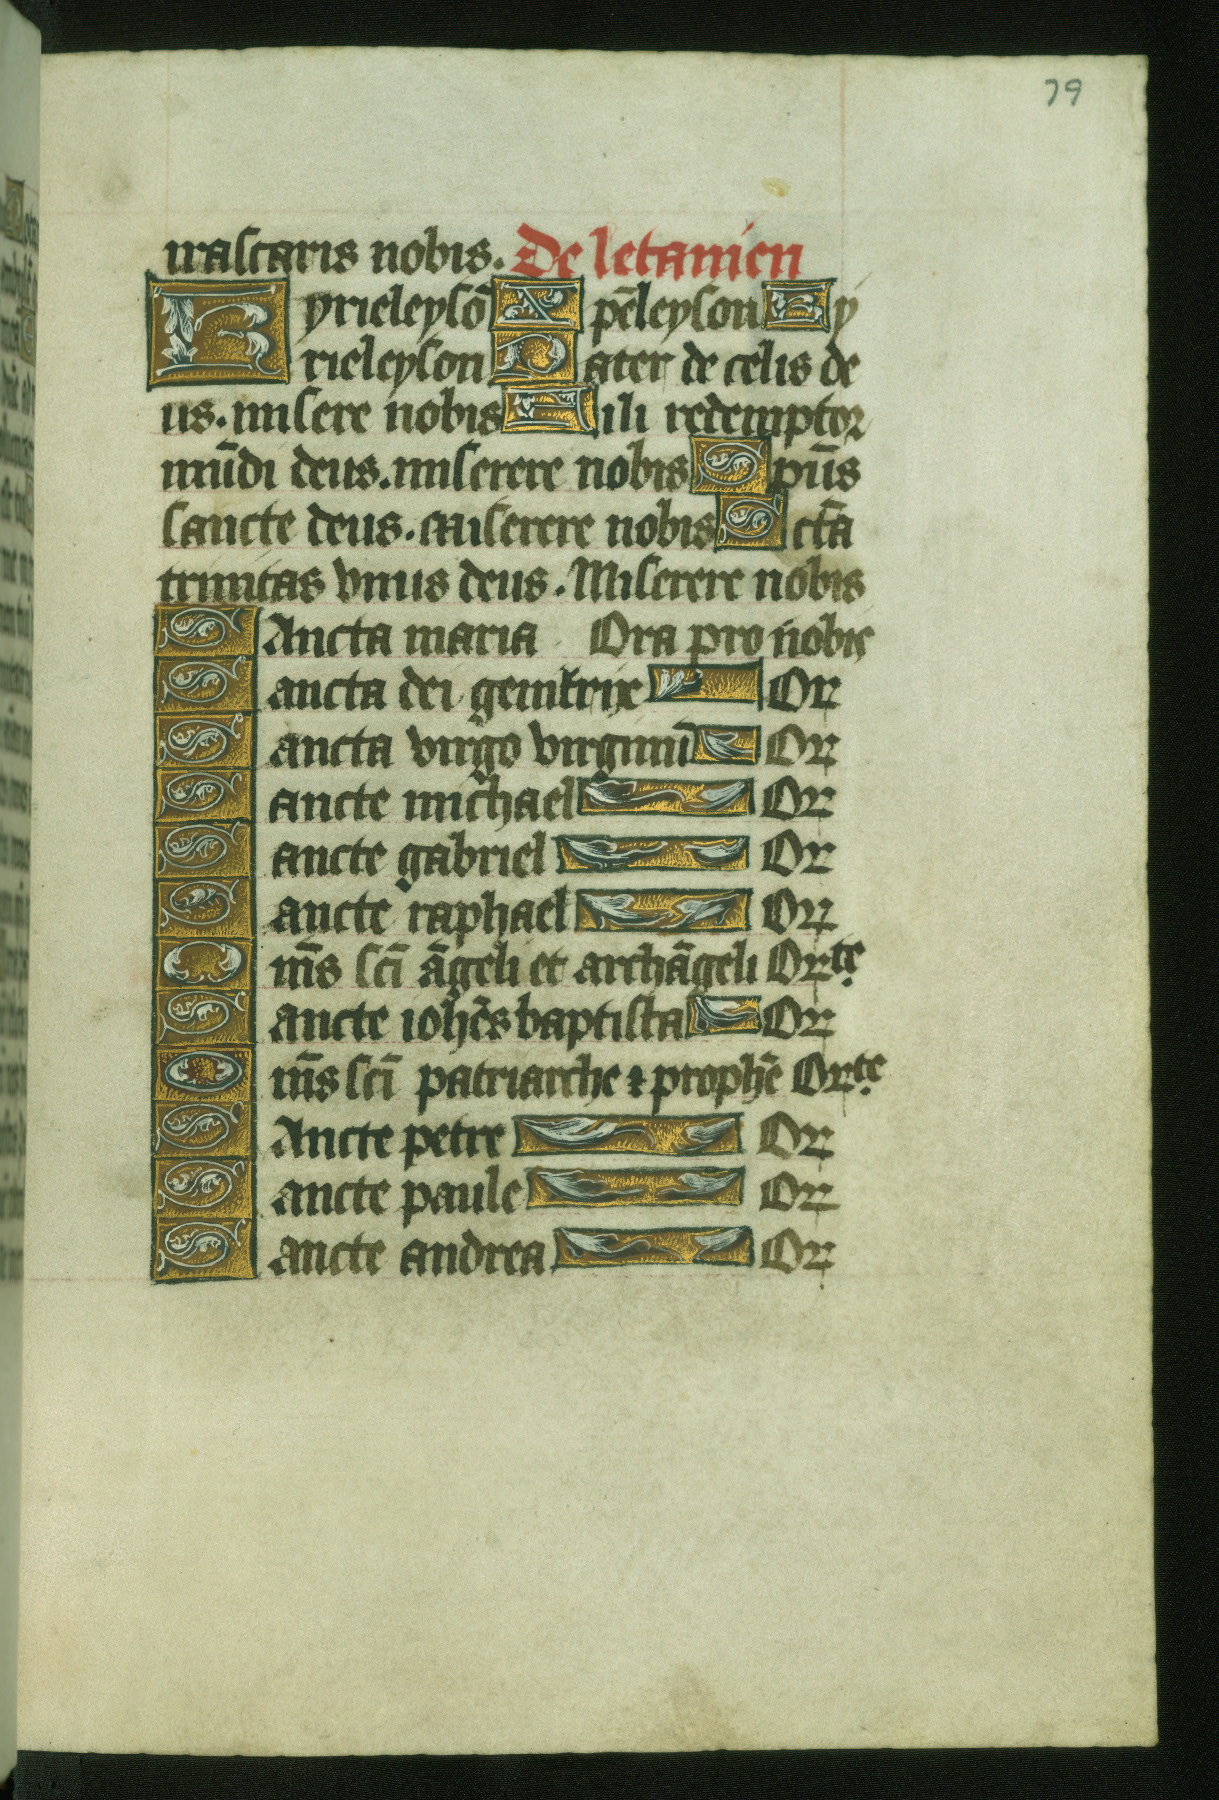 79
irascaris nobis. De letanien
Kyrieleysō Xpēleyson Ky
rieleyson Pater de celis de
us. misere nobis Fili redemptor
mūdi deus. miserere nobis Spūs
sancte deus. Miserere nobis Sctā
trinitas vnius deus. Miserere nobis
SAncta maria Ora pro nobis
Sancta dei genitrix Or
Sancta virgo virginū Or
Sancte michael Or
Sancte gabriel Or
Sancte raphael Or
Om̄s scī āgeli et archāgeli Orte.
Sancte iohēs baptista Or
Om̄s scī patriarche ⁊ prophē Orte.
SAncte petre Or
Sancte paule Or
Sancte andrea Or